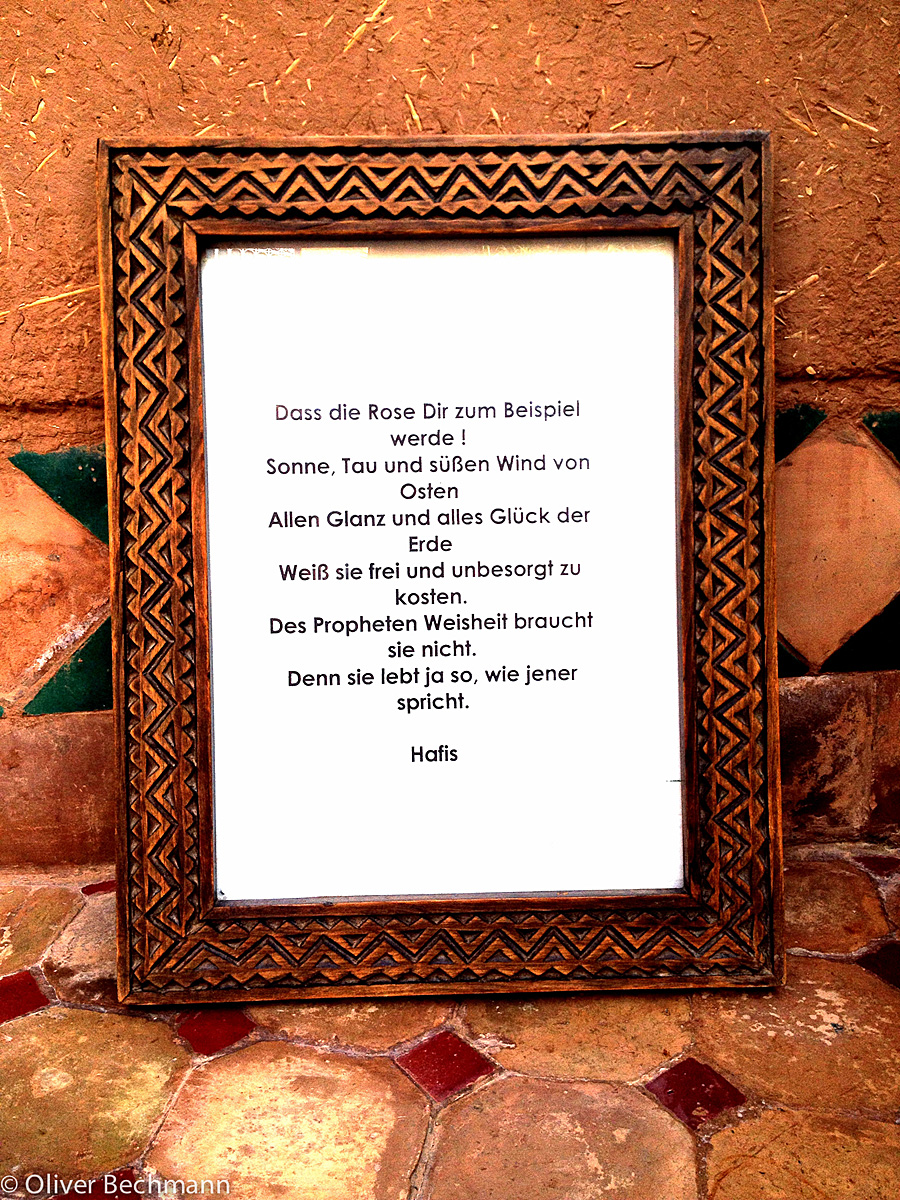 Dass die Rose Dir zum Beispiel
werde !
Sonne, Tau und süßen Wind von
Osten
Allen Glanz und alles Glück der
Erde
Weiß sie frei und unbesorgt zu
kosten.
Des Propheten Weisheit braucht
sie nicht.
Denn sie lebt ja so, wie jener
spricht.
Hafis
© Oliver Bechmann